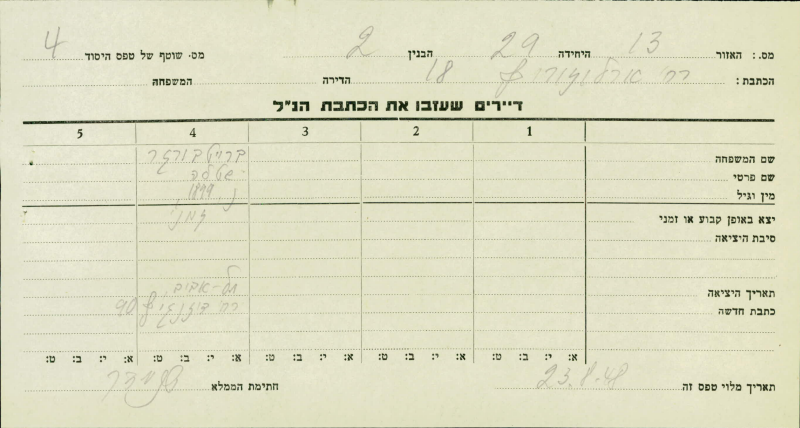 מס.: האזור 13 היחידה 29 הבנין 2 מס. שוטף של טפס היסוד 4
הכתבת: רח' ארלוזורוב 18 הדירה המשפחה
דיירים שעזבו את הכתבת הנ"ל
1 2 3 4 5
שם המשפחה
שם פרטי
מין וגיל נ. 1899
יצא באופן קבוע או זמני זמני
סיבת היציאה
תאריך היציאה תל-אביב
כתבת חדשה רח' דיזנגוף 90
א: י: ב: ט: א: י: ב: ט: א: י: ב: ט: א: י: ב: ט: א: י: ב: ט:
תאריך מלוי טפס זה 23.8.48 חתימת הממלא